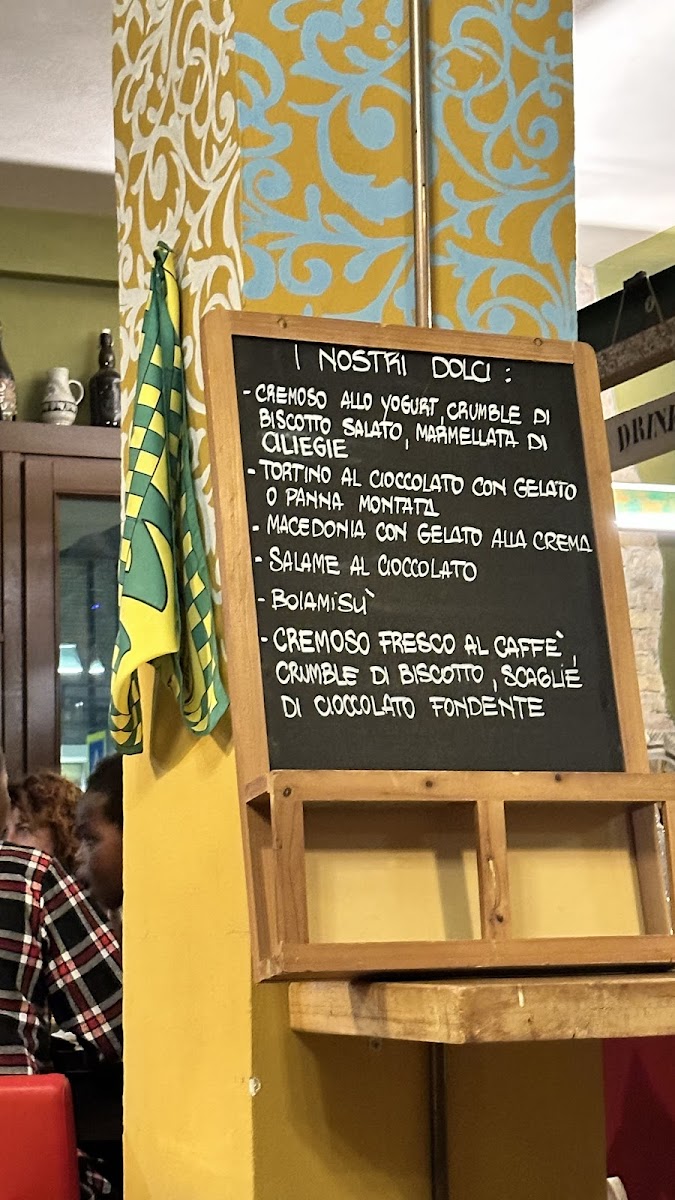 I NOSTRI DOLCI :
- CREMOSO ALLO YOGURT, CRUMBLE DI
BISCOTTO SALATO, MARMELLATA DI
CILIEGIE
- TORTINO AL CIOCCOLATO CON GELATO
O PANNA MONTATA
- MACEDONIA CON GELATO ALLA CREMA
- SALAME AL CIOCCOLATO
- BOIAMISU'
- CREMOSO FRESCO AL CAFFE',
CRUMBLE DI BISCOTTO, SCAGLIE
DI CIOCCOLATO FONDENTE